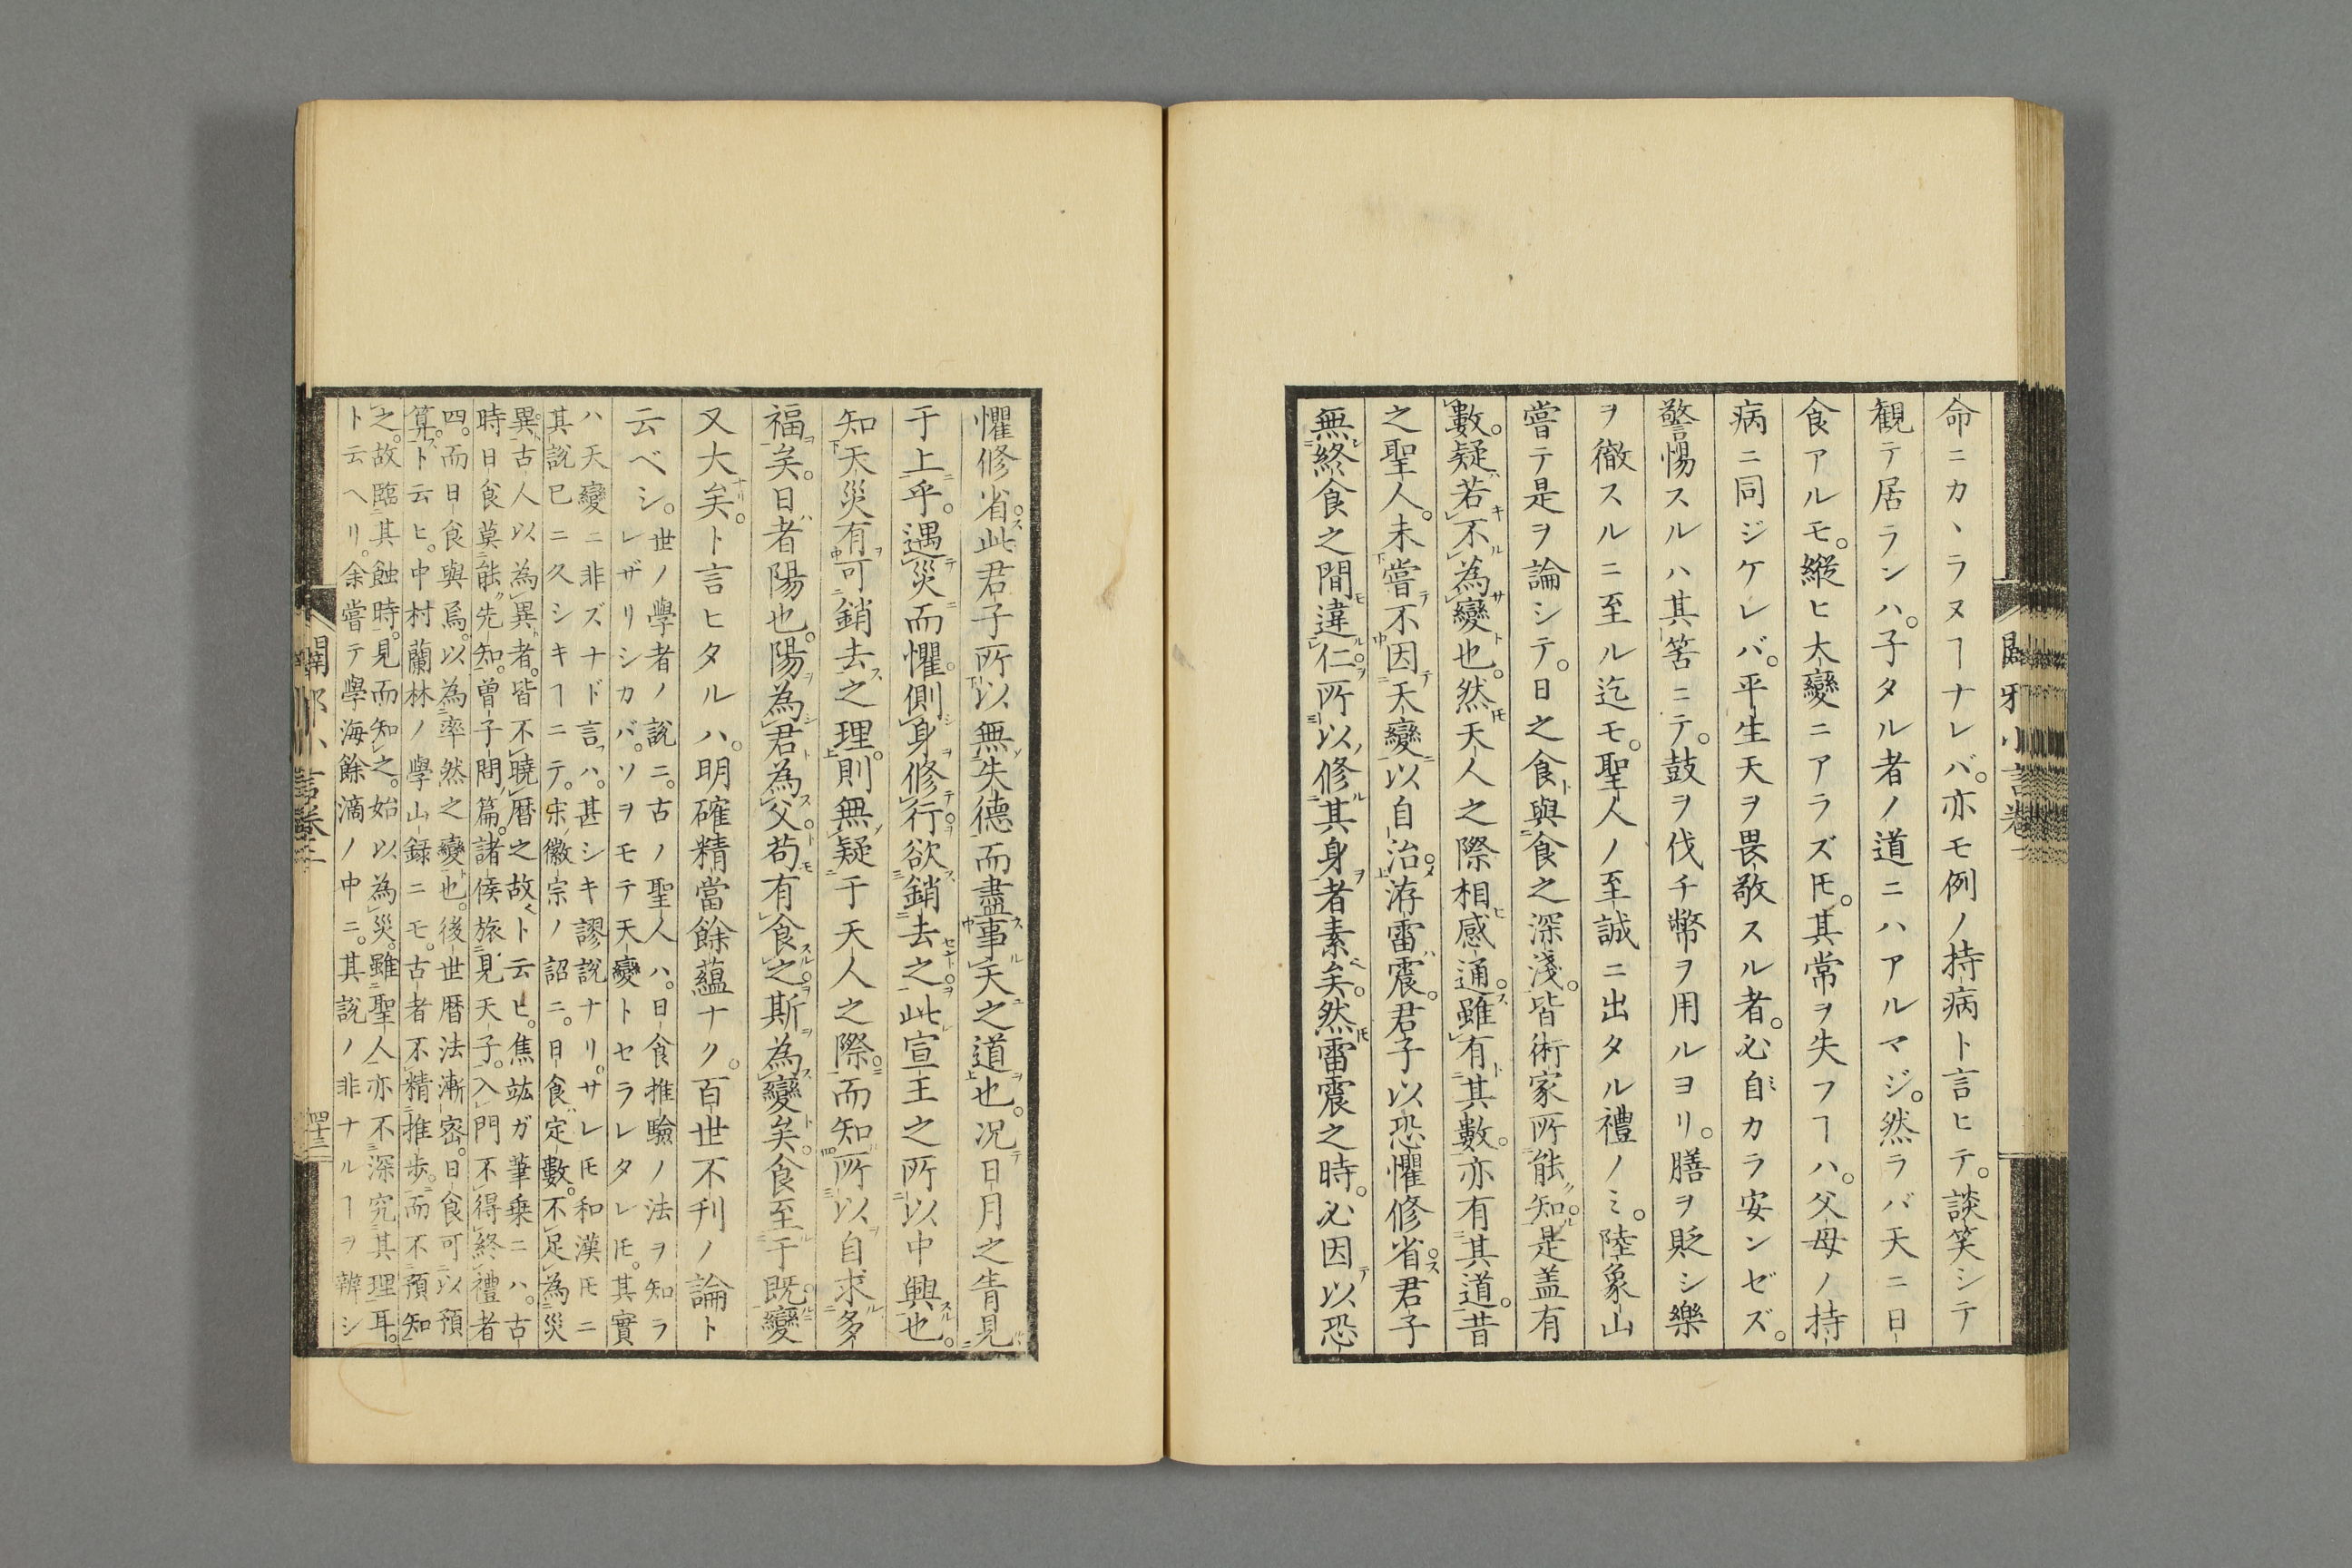 命ニカヽラヌヿナレバ。亦モ例ノ持病ト言ヒテ。談笑シテ
観テ居ラン。ハ子タル者ノ道ニハアルマジ。然ラバ天ニ日
食アルモ。縦ヒ大變ニアラズ𪜈。其常ヲ失フヿハ。父母ノ持
病ニ同ジケレバ。平生天ヲ畏敬スル者。必自カラ安ンゼズ。
警惕スルハ其筈ニテ。鼓ヲ伐チ幣ヲ用ルヨリ。膳ヲ貶シ樂
ヲ徹スルニ至ル迄モ。聖人ノ至誠ニ出タル禮ノミ。陸象山
嘗テ是ヲ論シテ。日之食與食之深淺。皆術家所能知。是盖有
數。疑若不為變也。然天人之際相感通。雖有其數。亦有其道。昔
之聖人。未嘗不因天變以自治。洊雷震。君子以恐懼修省。君子
無終食之間違仁。所以修其身者素矣。然雷震之時。必因以恐
懼修省。此君子所以無失德而盡事天之道也。況日月之眚見
于上乎。遇災而懼。側身修行。欲銷去之。此宣王之所以中興也。
知天災有可銷去之理。則無疑于天人之際。而知所以自求多
福矣。日者陽也。陽為君為父。苟有食之。斯為變矣。食至于既。變
又大矣。ト言ヒタルハ。明確精當餘蘊ナク。百世不刊ノ論ト
云ベシ。世ノ學者ノ說ニ。古ノ聖人ハ。日食推驗ノ法ヲ知ラ
レザリシカバ。ソヲモテ天變トセラレタレ𪜈。其實
ハ天變ニ非ズナド言フハ。甚シキ謬說ナリ。サレ𪜈和漢𪜈ニ
其說已ニ久シキヿニテ。宋徽宗ノ詔ニ。日食定數。不足為災
異。古人以為異者。皆不曉曆之故ト云ヒ。焦竑ガ筆乗ニハ。古
時日食莫能先知。曾子問篇。諸侯旅見天子。入門不得終禮者
四。而日食與焉。以為率然之變也。後世曆法漸密。日食可以預
算。ト云ヒ。中村蘭林ノ學山録ニモ。古者不精推歩。而不預知
之。故臨其蝕時。見而知之。始以為災。雖聖人亦不深究其理耳。
ト云ヘリ。余嘗テ學海餘滴ノ中ニ。其說ノ非ナルヿヲ辨シ
四十三